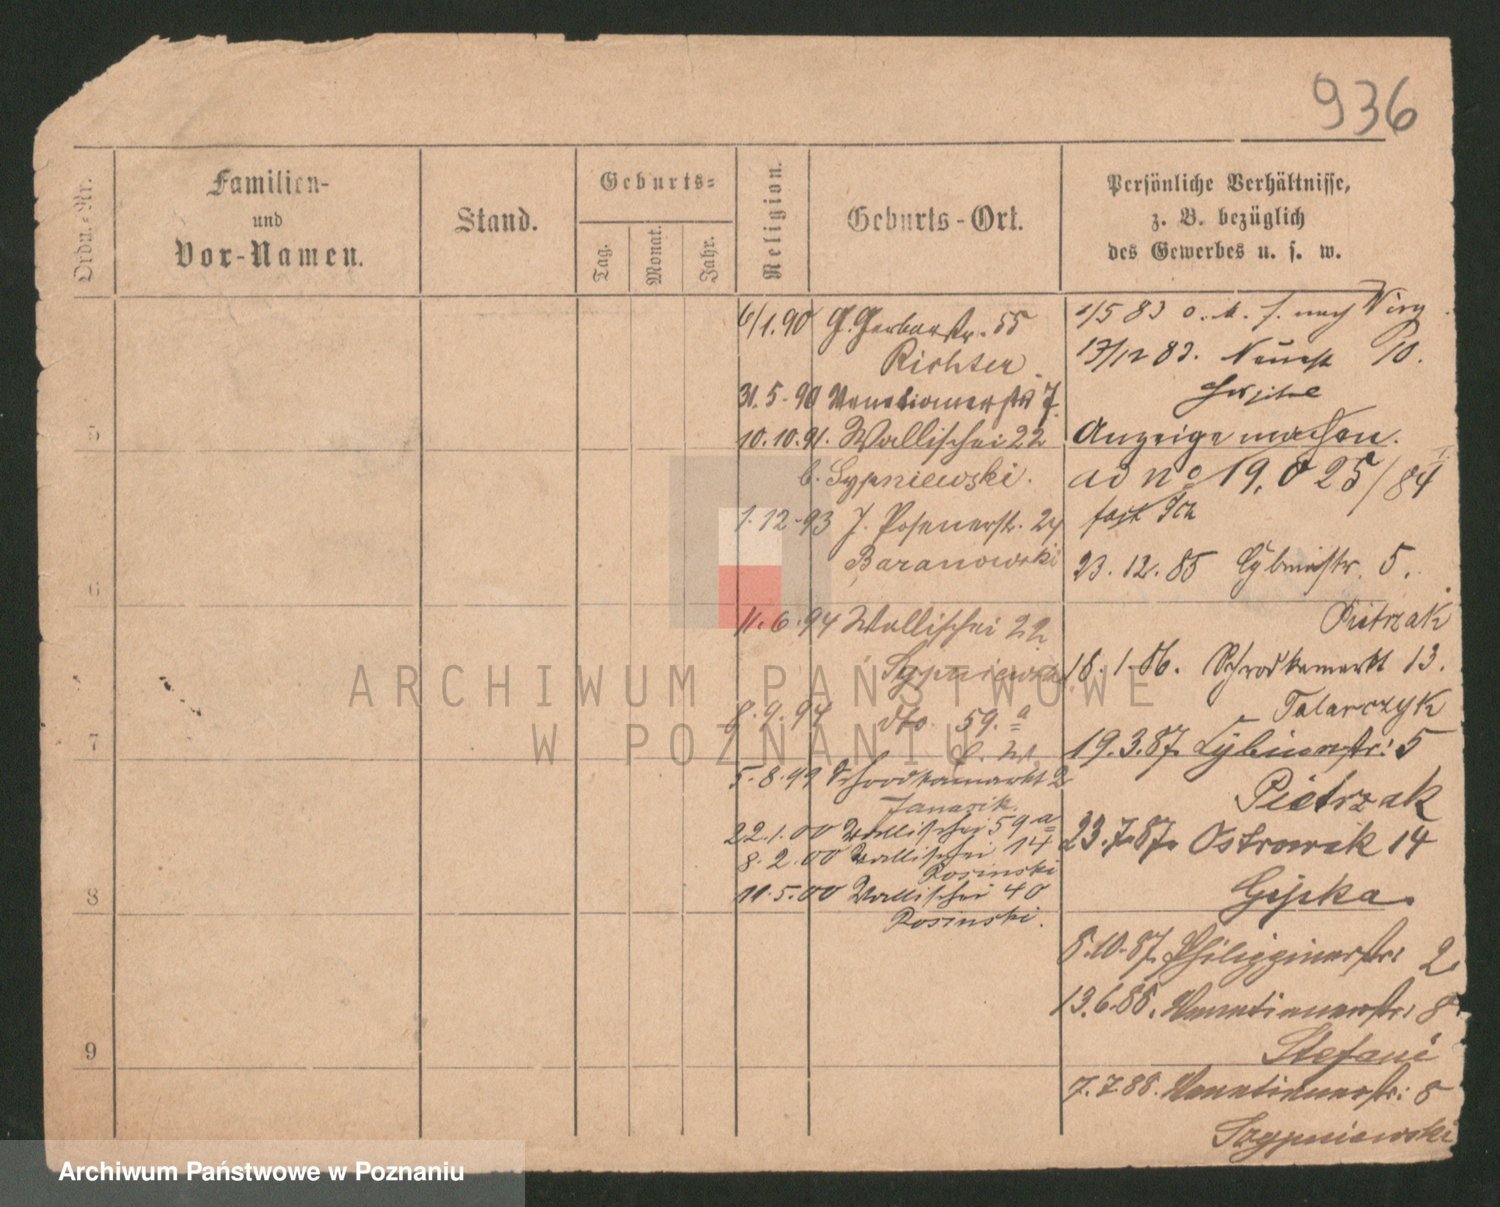 936
Ordn.-Nr.
Familien-
und
Vor-Namen.
Stand.
Geburts-
Tag.
Monat.
Jahr.
Religion.
Geburts-Ort.
Persönliche Verhältnisse,
z. B. bezüglich
des Gewerbes u. s. w.
5
6
7
8
9
6/1.90 G. Gerberstr. 55
Richter
31.5.90 Venetianerstr 7
10.10.91. Wallischei 22
b. Sypniewski.
1.12.93 J. Posenerstr. 24
Baranowski
11.6.94 Wallischei 22
Sypniewska
8.9.94 dto. 59.a
5.8.99 Schrodkamarkt 2
Janasik.
22.1.00 Wallischei 59a
8.2.00 Wallischei 14
Rosinski
11.5.00 Wallischei 40
Rosinski.
1/5 83 o. A. f. nach
17/12 83. 10.
Anzeige machen.
ad no 19,025/84
23.12.85 Cybinastr. 5.
Pietrzak
18.1.86. Schrodkamarkt 13.
Talarczyk
19.3.87. Cybinastr: 5
Pietrzak
23.7.87. Ostrowek 14
8.10.87. Philippinerstr: 2.
13.6.88. Venetianerstr: 8.
Stefani
7.7.88. Venetianerstr: 8
Szypniewski
ARCHIWUM PAŃSTWOWE
W POZNANIU
Archiwum Państwowe w Poznaniu